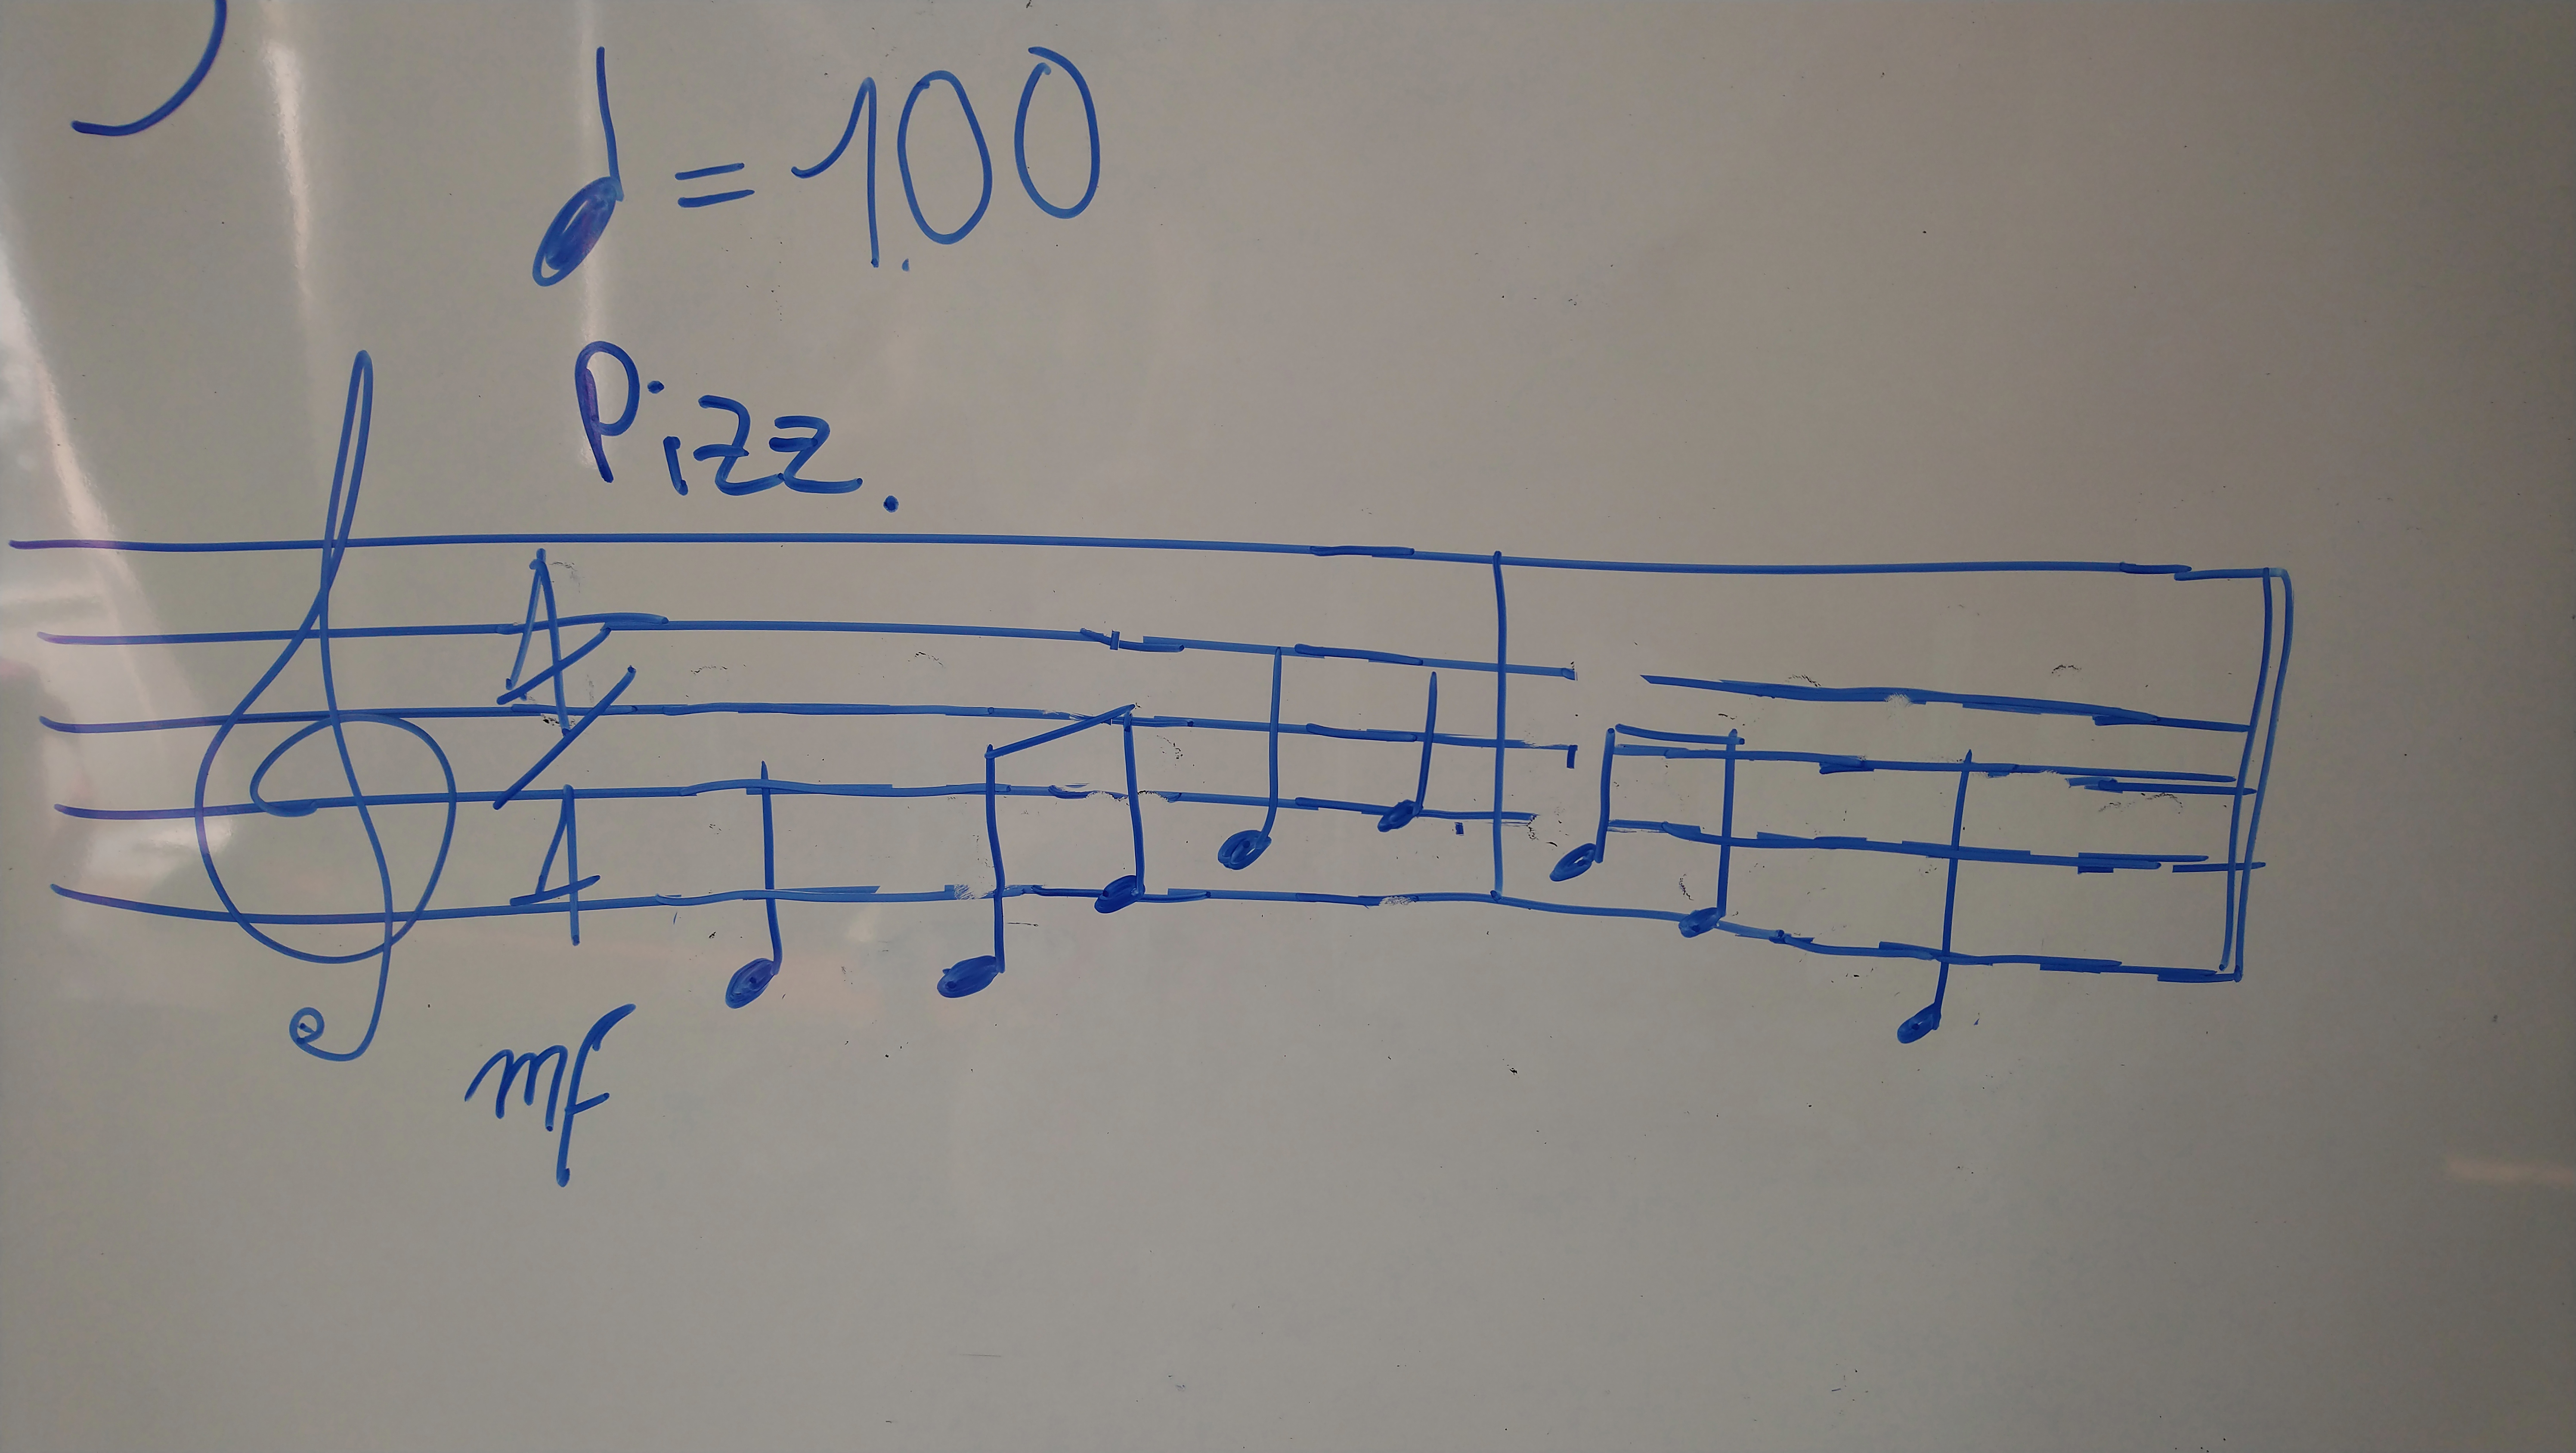 ♩ = 100
Pizz.
4/4
mf